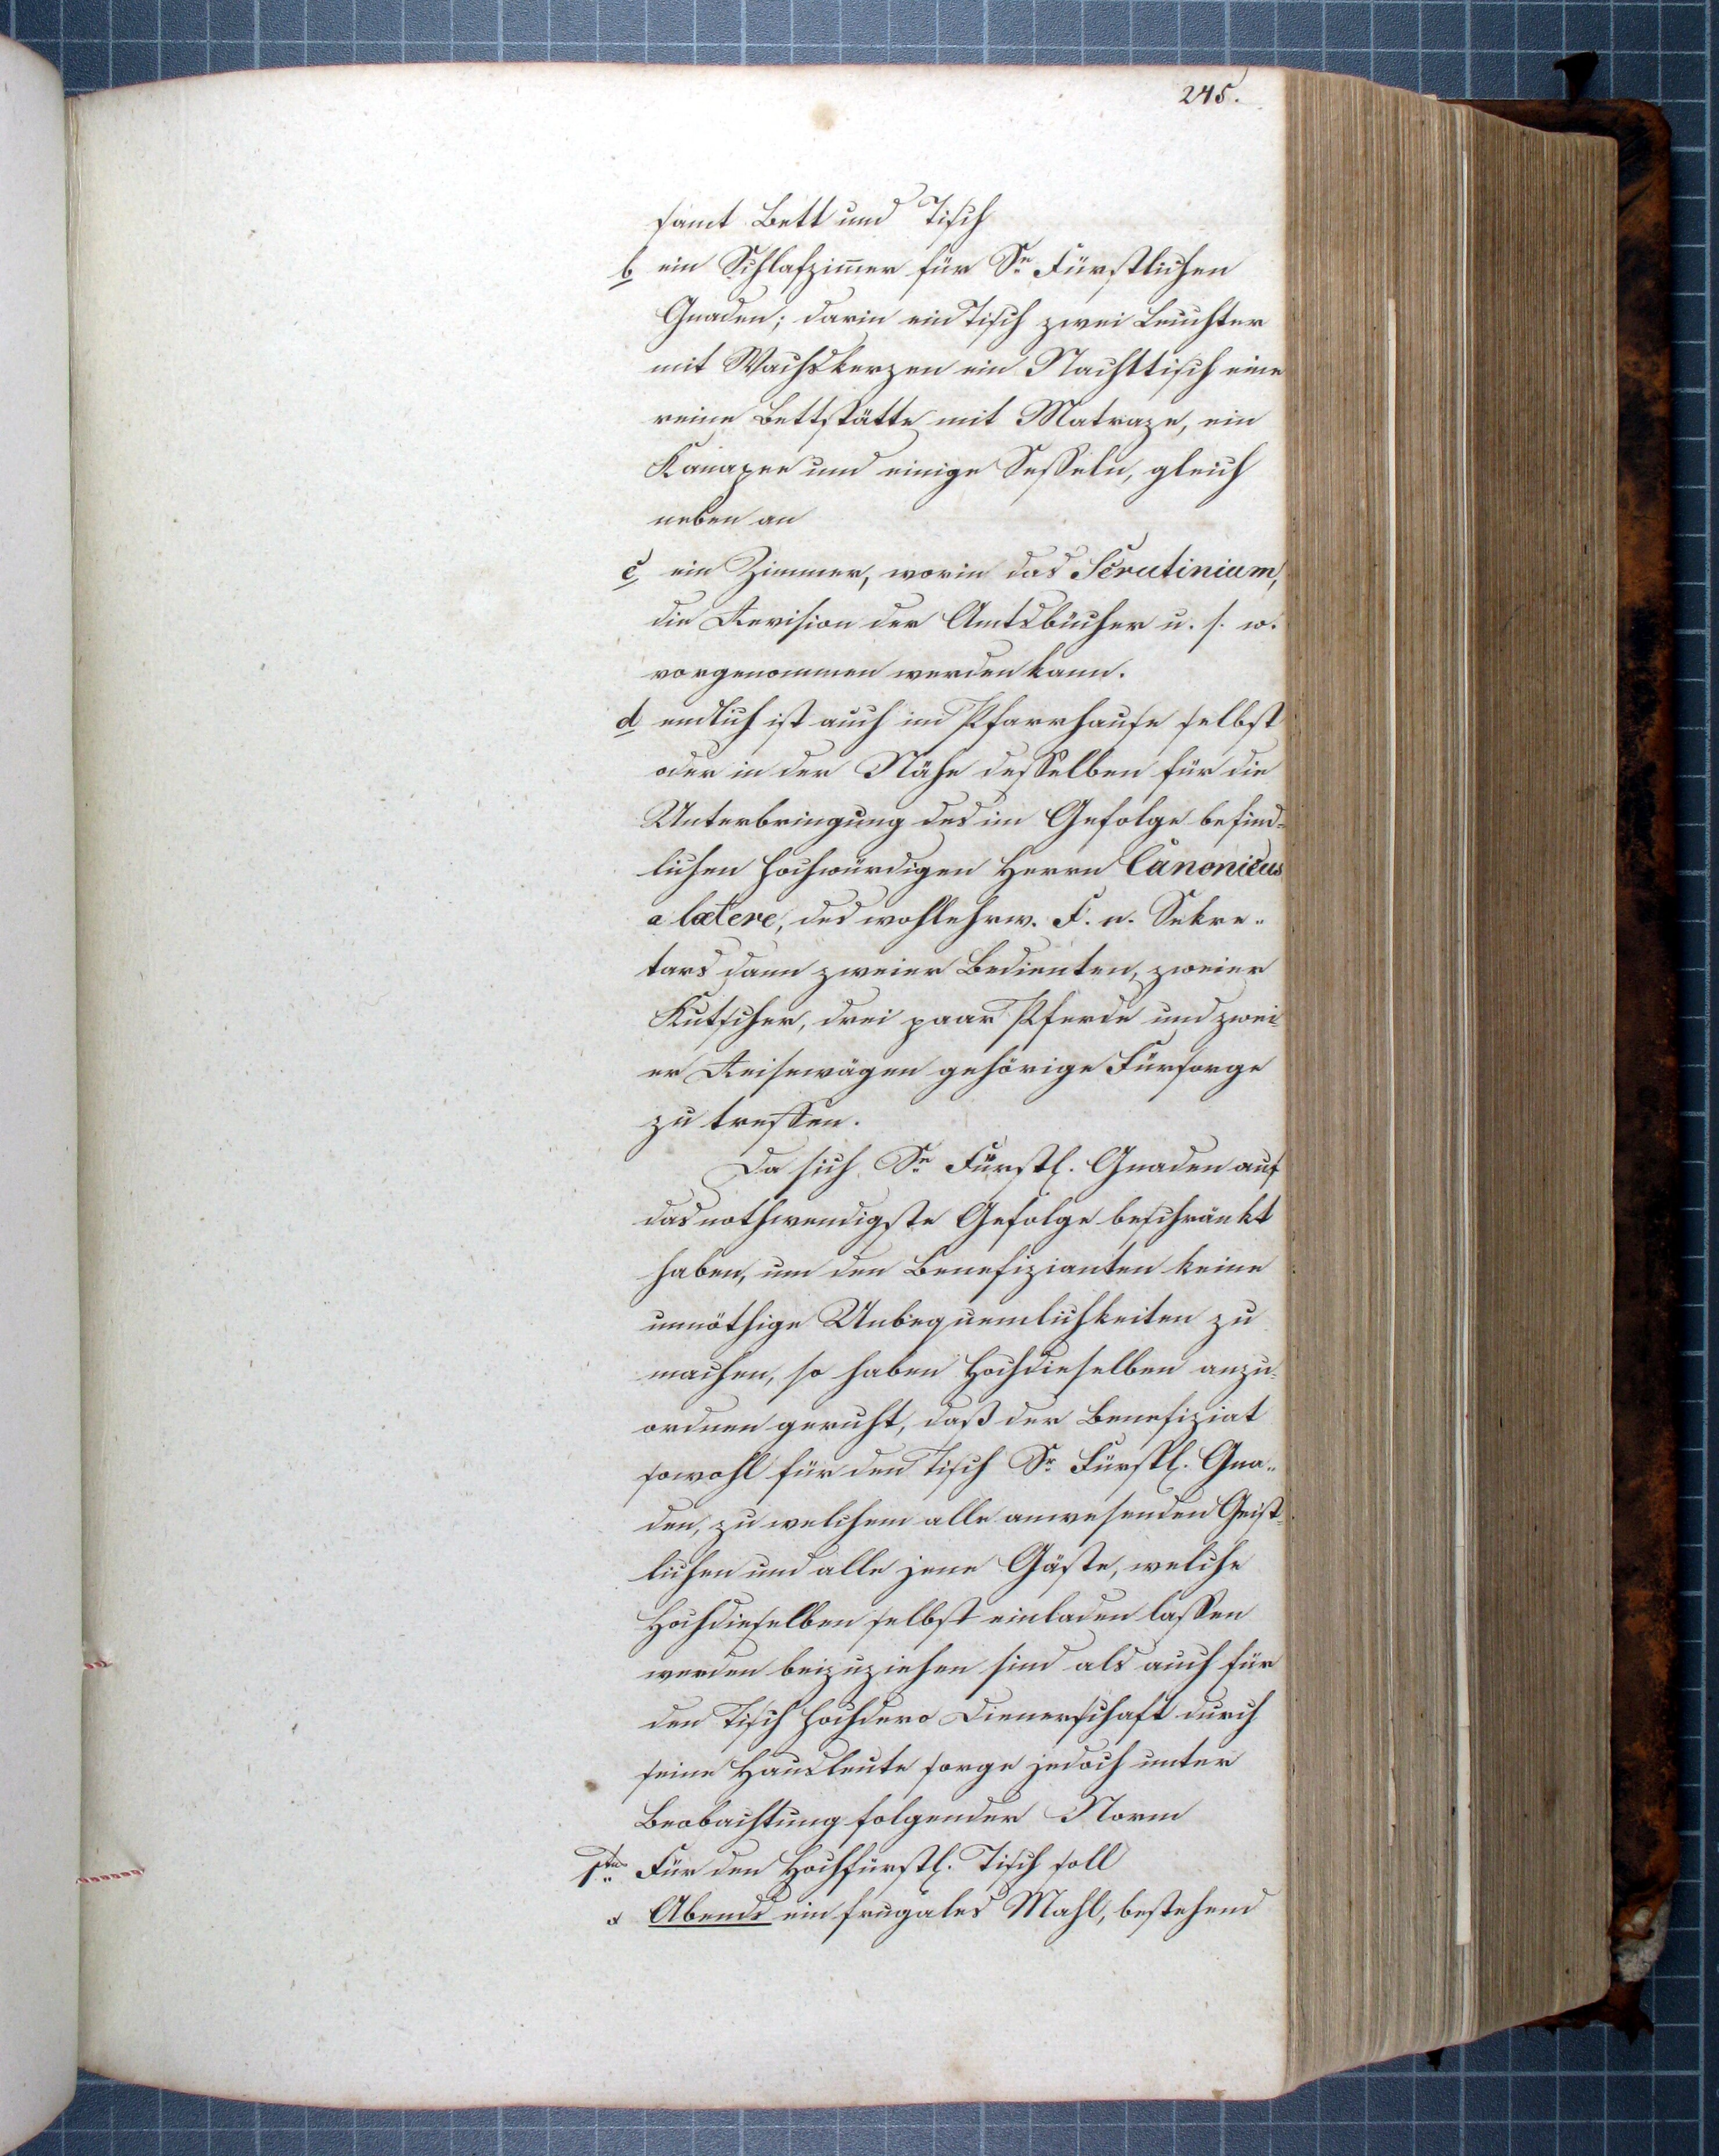 245.
samt Bett und Tisch
b ein Schlafzim̄er für Se Fürstlichen
Gnaden; darin ein Tisch zwei Leuchter
mit Wachskerzen ein Nachttisch eine
reine Bettstätte mit Matraze, ein
Kanapee und einige Sesseln, gleich
neben an
c ein Zimmer, worin das Scrutinium,
die Revision der Amtsbücher u. s. w.
vorgenommen werden kann.
d endlich ist auch im Pfarrhause selbst
oder in der Nähe desselben für die
Unterbringung des im Gefolge befind-
lichen hochwürdigen Herrn Canonicus
a latere, des wohlehrw. F. e. Sekre-
tars dann zweier Bedienten, zweier
Kutscher, drei paar Pferde und zwei
er Reisewägen gehörige Fürsorge
zu treffen.
Da sich Se Fürstl. Gnaden auf
das nothwendigste Gefolge beschränkt
haben, um den Benefizianten keine
unnöthige Unbequemlichkeiten zu
machen, so haben Hochdieselben anzu-
ordnen geruht, daß der Benefiziat
sowohl für den Tisch Sr Fürstl. Gna-
den, zu welchem alle anwesenden Geist-
lichen und alle jene Gäste, welche
Hochdieselben selbst einladen lassen
werden beizuziehen sind als auch für
den Tisch Hochdero Dienerschaft durch
seine Hausleute sorge jedoch unter
Beobachtung folgender Norm
1tens Für den Hochfürstl. Tisch soll
α Abends ein frugales Mahl, bestehend